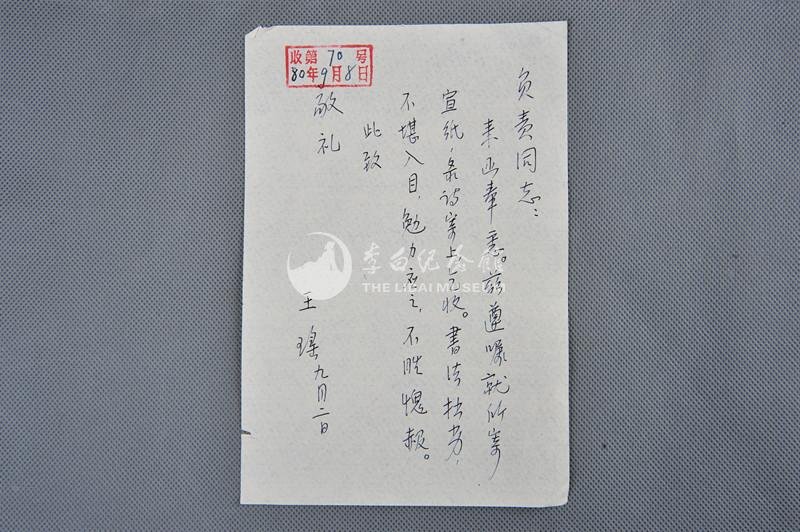 负责同志：
来函奉悉。兹遵嘱就所寄
宣纸，录诗寄上乞收。書法拙劣，
不堪入目，勉力应之，不胜愧赧。
此致
敬礼
王瑶 九月二日
收第70号
80年9月8日
李白纪念館
THE LIBAI MUSEUM